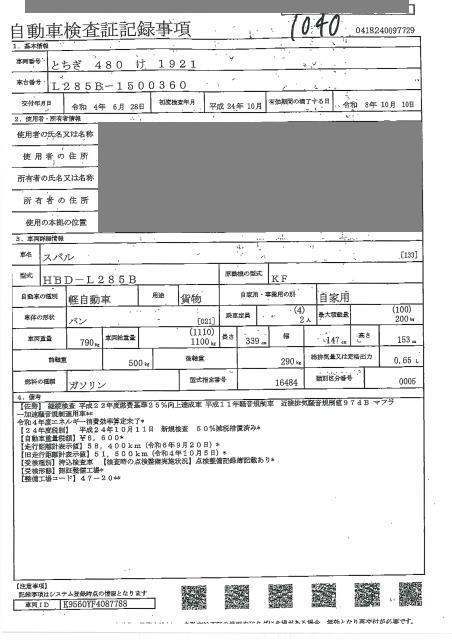 1040
自動車検査証記録事項
0418240097729
1. 基本情報
車両番号 とちぎ 480 け 1921
車台番号 L285B-1500360
交付年月日 令和 4年 6月 28日 初度検査年月 平成 24年 10月 有効期間の満了する日 令和 8年 10月 10日
2. 使用者・所有者情報
使用者の氏名又は名称
使用者の住所
所有者の氏名又は名称
所有者の住所
使用の本拠の位置
3. 車両詳細情報
車名 スバル [133]
型式 HBD-L285B 原動機の型式 KF
自動車の種別 軽自動車 用途 貨物 自家用・事業用の別 自家用
車体の形状 バン [021] 乗車定員 (4) 2人 最大積載量 (100) 200kg
車両重量 790kg 車両総重量 (1110) 1100kg 長さ 339cm 幅 147cm 高さ 153cm
前軸重 500kg 後軸重 290kg 総排気量又は定格出力 0.65L
燃料の種類 ガソリン 型式指定番号 16484 類別区分番号 0005
4. 備考
【佐野】 継続検査 平成22年度燃費基準25%向上達成車 平成11年騒音規制車 近接排気騒音規制値97dB マフラ
ー加速騒音規制適用車**
令和4年度エネルギー消費効率算定未了*
【24年度税制】 平成24年10月11日 新規検査 50%減税措置済み*
【自動車重量税額】¥6,600*
【走行距離計表示値】58,400km(令和6年9月20日)*
【旧走行距離計表示値】51,500km(令和4年10月5日)*
【受検種別】持込検査車 【検査時の点検整備実施状況】点検整備記録簿記載あり*
【受検形態】認証整備工場*
【整備工場コード】47-20**
【注意事項】
記録事項はシステム登録時点の情報となります
車両ID K9560YF4087788